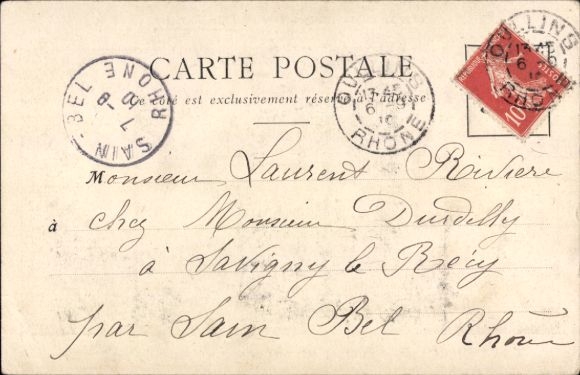 CARTE POSTALE
Ce côté est exclusivement réservé à l'adresse
OULLINS
RHÔNE
OULLINS
RHÔNE
10
SAIN-BEL
RHONE
Monsieur Laurent Rivière
à chez Monsieur Durdilly
à Savigny le
par Sain Bel Rhône